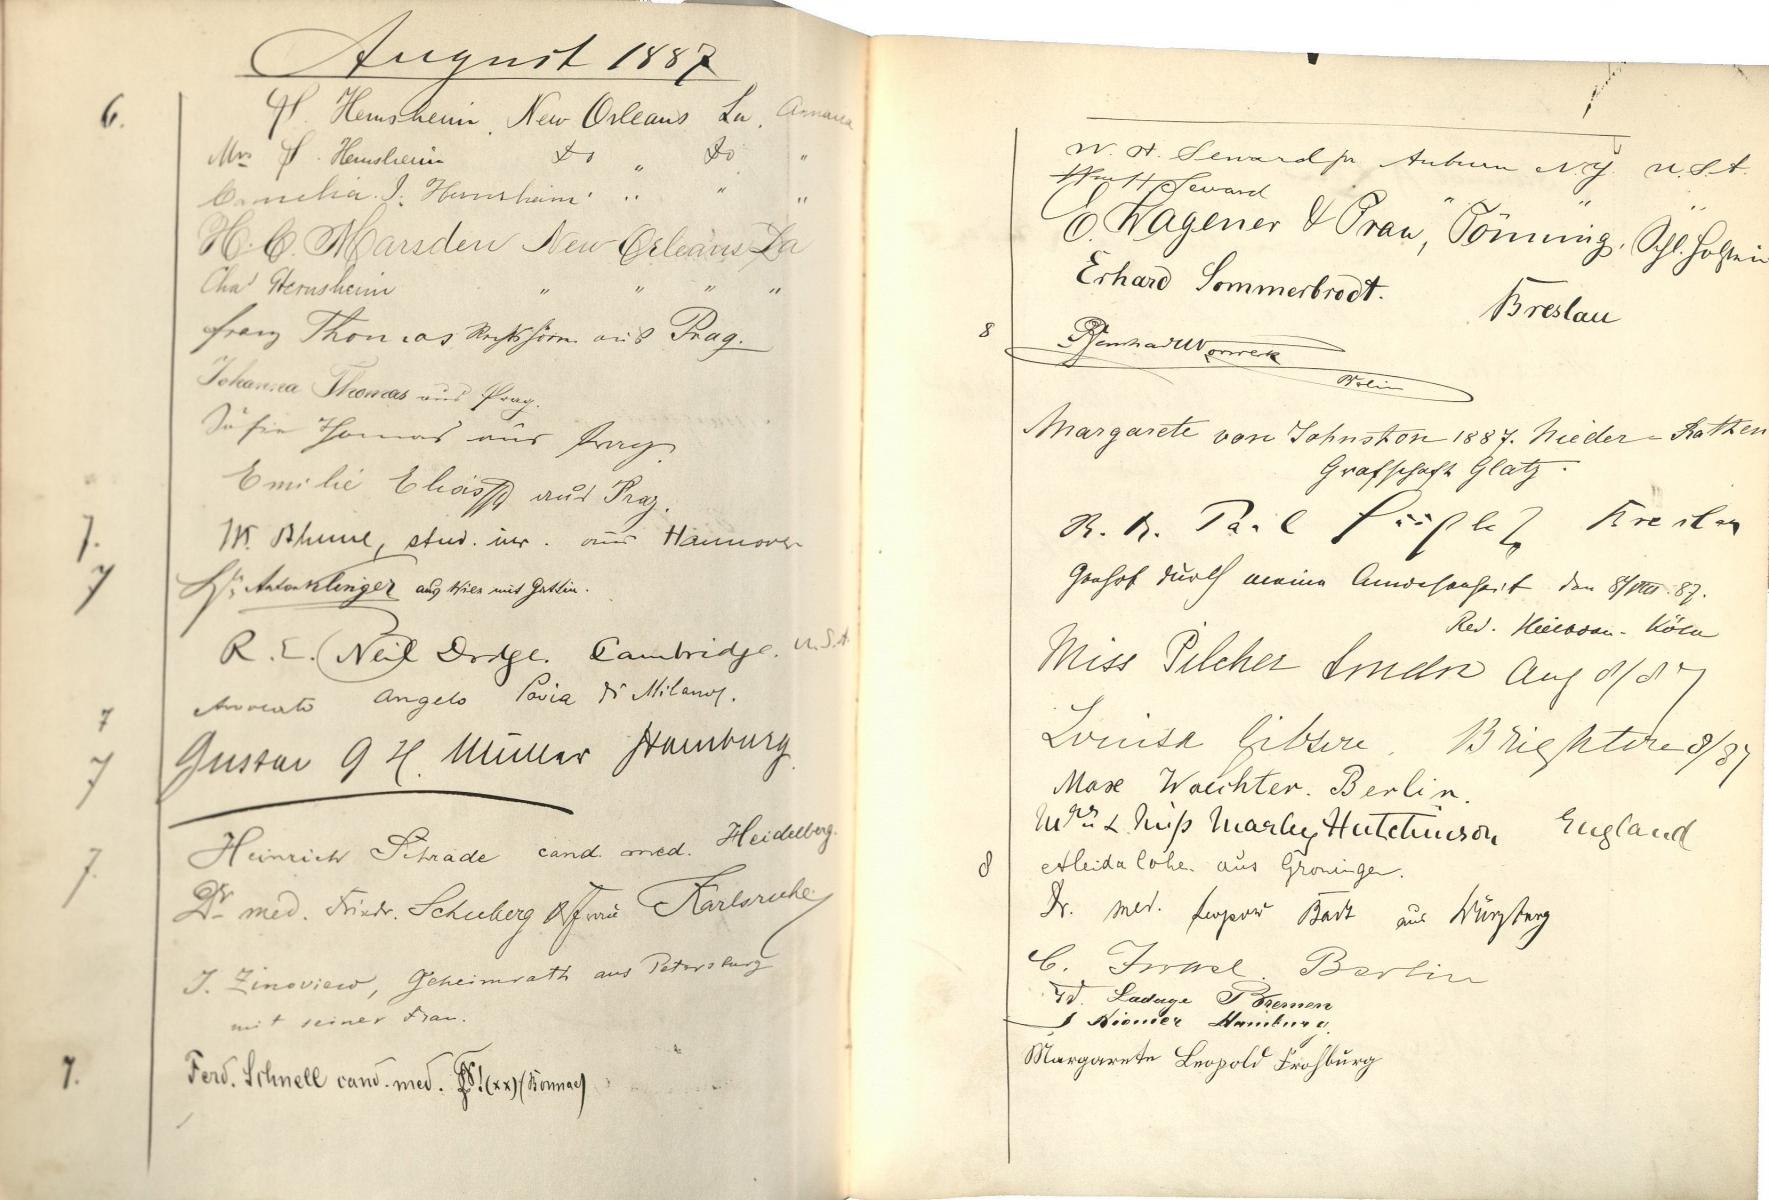 August 1887
6.
S. Hernsheim, New Orleans La.
Mrs S. Hernsheim Do " Do "
J. Hernsheim " " "
H. C. Marsden New Orleans La
Chas Hernsheim " " " "
Franz Thomas aus Prag.
Johanna Thomas aus Prag.
Sofie Thomas aus Prag.
Emilie aus Prag.
7.
W. Blume, stud. iur. aus Hannover
7
Anton Klinger aus Wien mit Gattin.
R. E. Neil Dodge. Cambridge. U.S.A.
Avvocato Angelo Pavia di Milano.
7
7
Gustav A H. Müller Hamburg.
7.
Heinrich Schrade cand. med. Heidelberg.
Dr med. Friedr. Schuberg & Frau Karlsruhe
J. Zinoview, Geheimrath aus Petersburg
mit seiner Frau.
7.
Ferd. Schnell cand. med. (xx)
W. H. Seward jr Auburn N.Y. U.S.A.
Seward " " "
E. Wagener & Frau, Tönning, Schl. Holstein
Erhard Sommerbrodt. Breslau
8
Bernhard Vorwerk
Margarete von Johnston 1887. Nieder - Rathen
Grafschaft Glatz.
R. A. Paul Breslau
durch meine Anwesenheit den 8/VIII. 87.
Köln
Miss Pilcher London Aug 8/87
Louisa Gibson. Brighton 8/87
Max Waechter. Berlin.
Mrs & Miss Marley Hutchinson England
8
Aleida Cohen aus Groningen.
Dr. med. Leopold Badt aus Würzburg
C. Israel. Berlin
Fd. Ladage Bremen
Hamburg.
Margarete Leopold Frohburg